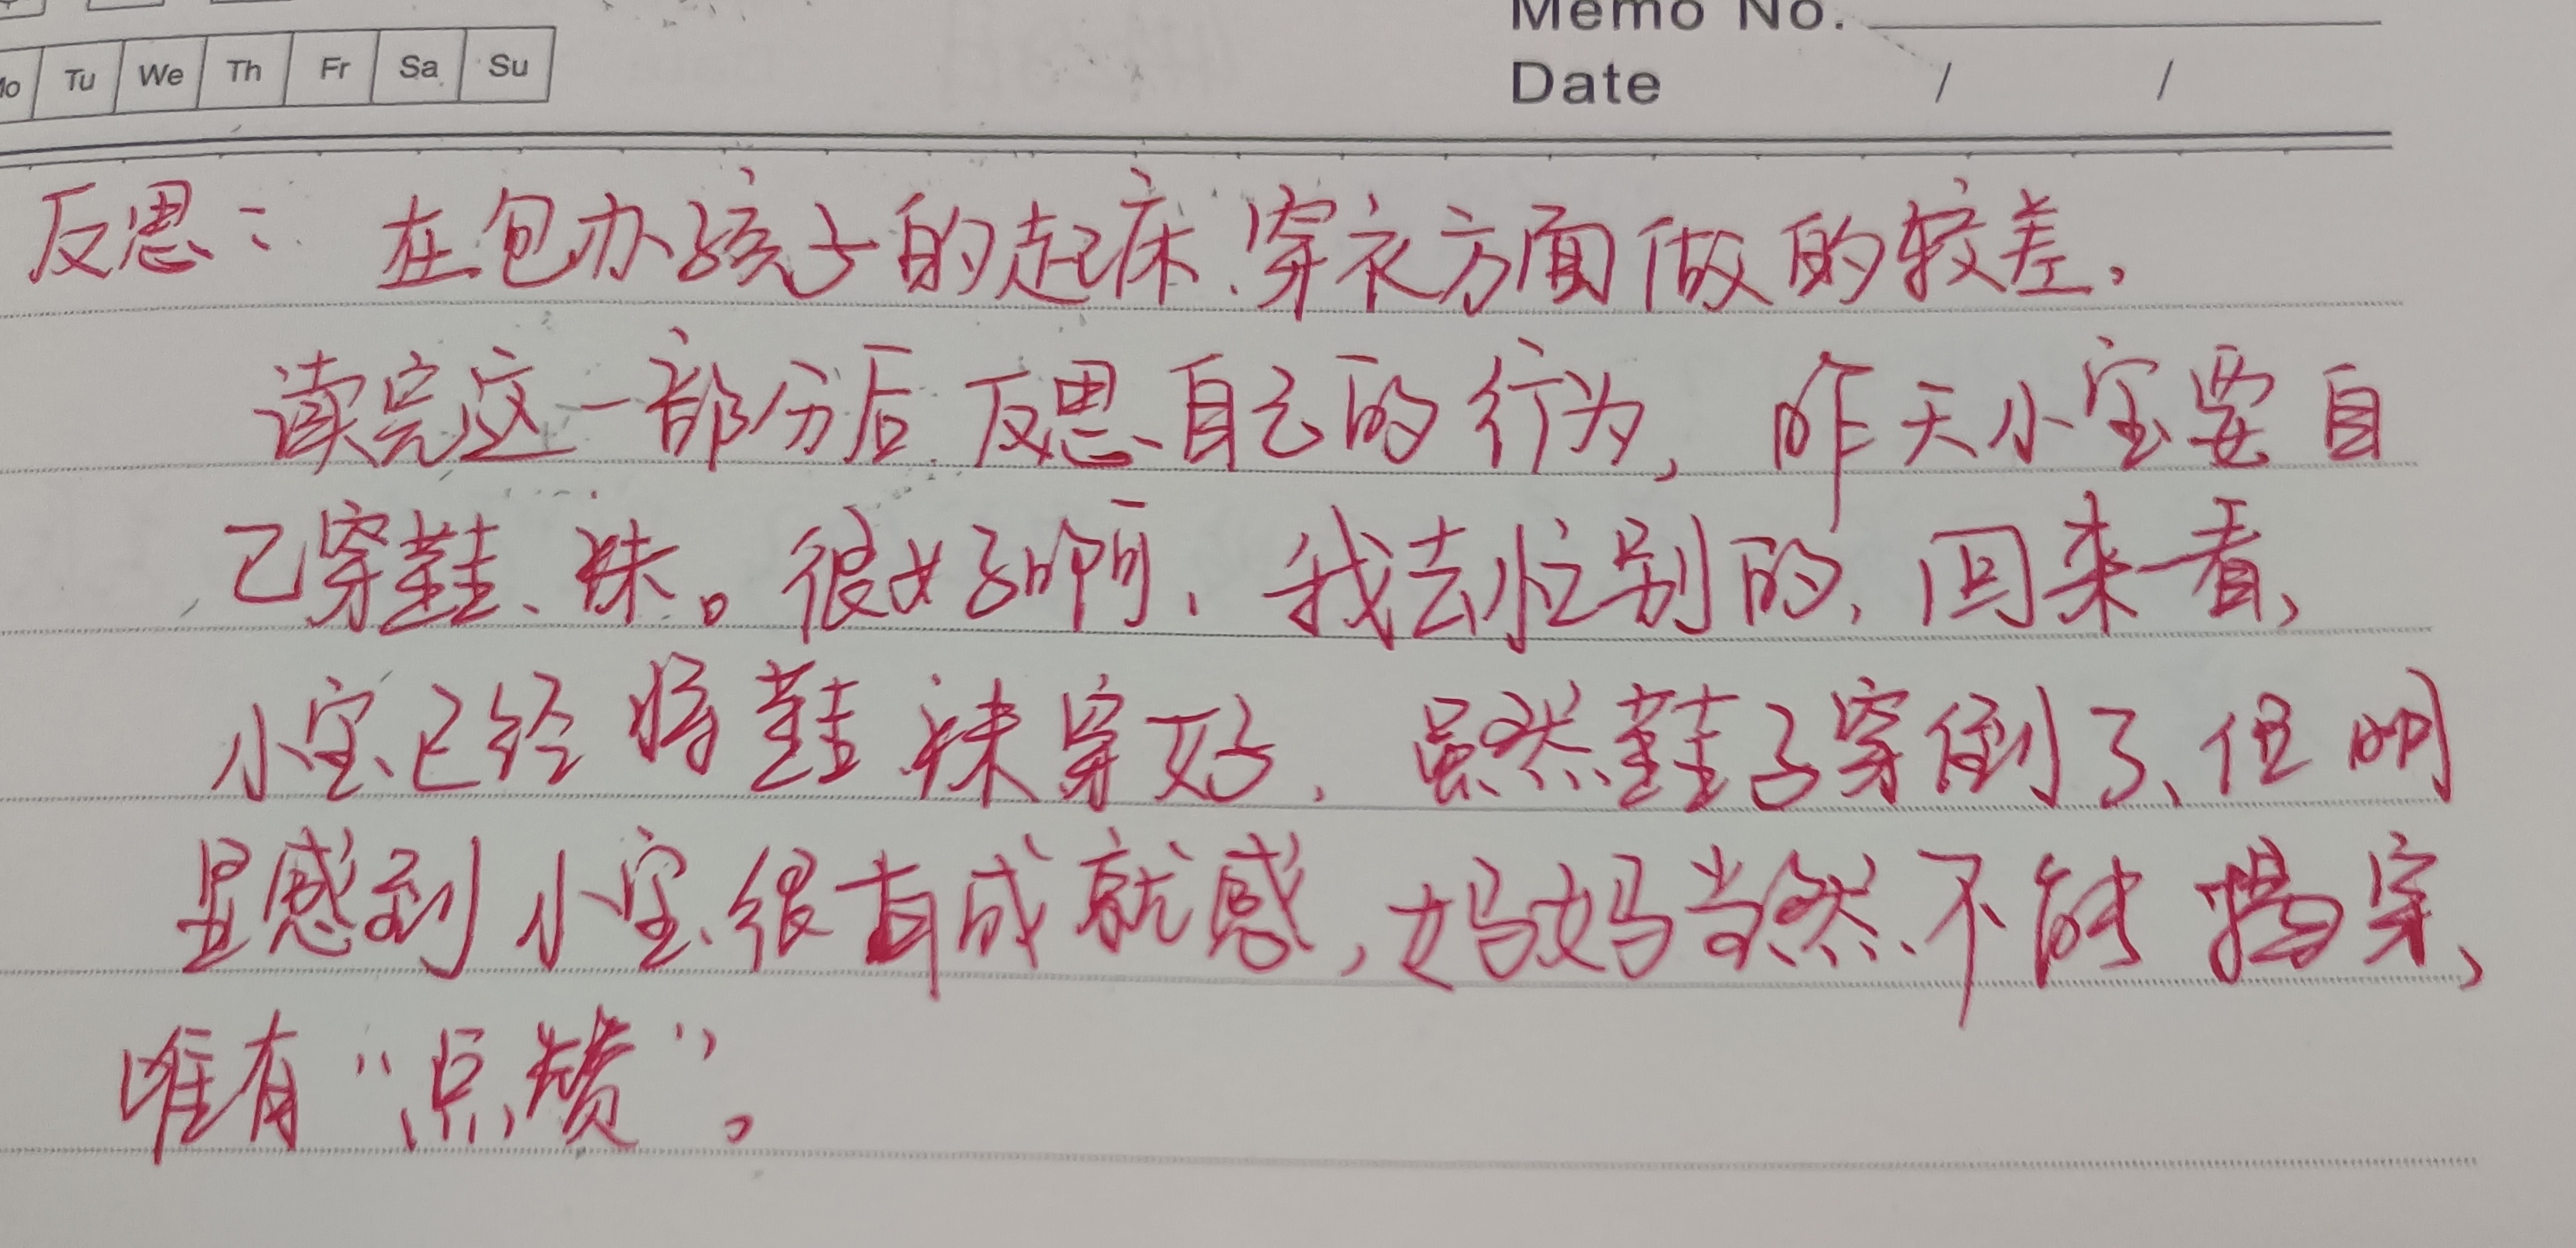 Memo No.
Mo Tu We Th Fr Sa Su
Date / /
反思：在包办孩子的起床、穿衣方面做的较差，
读完这一部分后，反思自己的行为，昨天小宝要自
己穿鞋、袜。很好啊，我去忙别的，回来一看，
小宝已经将鞋袜穿好，虽然鞋子穿倒了，但明
显感到小宝很有成就感，妈妈当然不能揭穿，
唯有“点赞”。